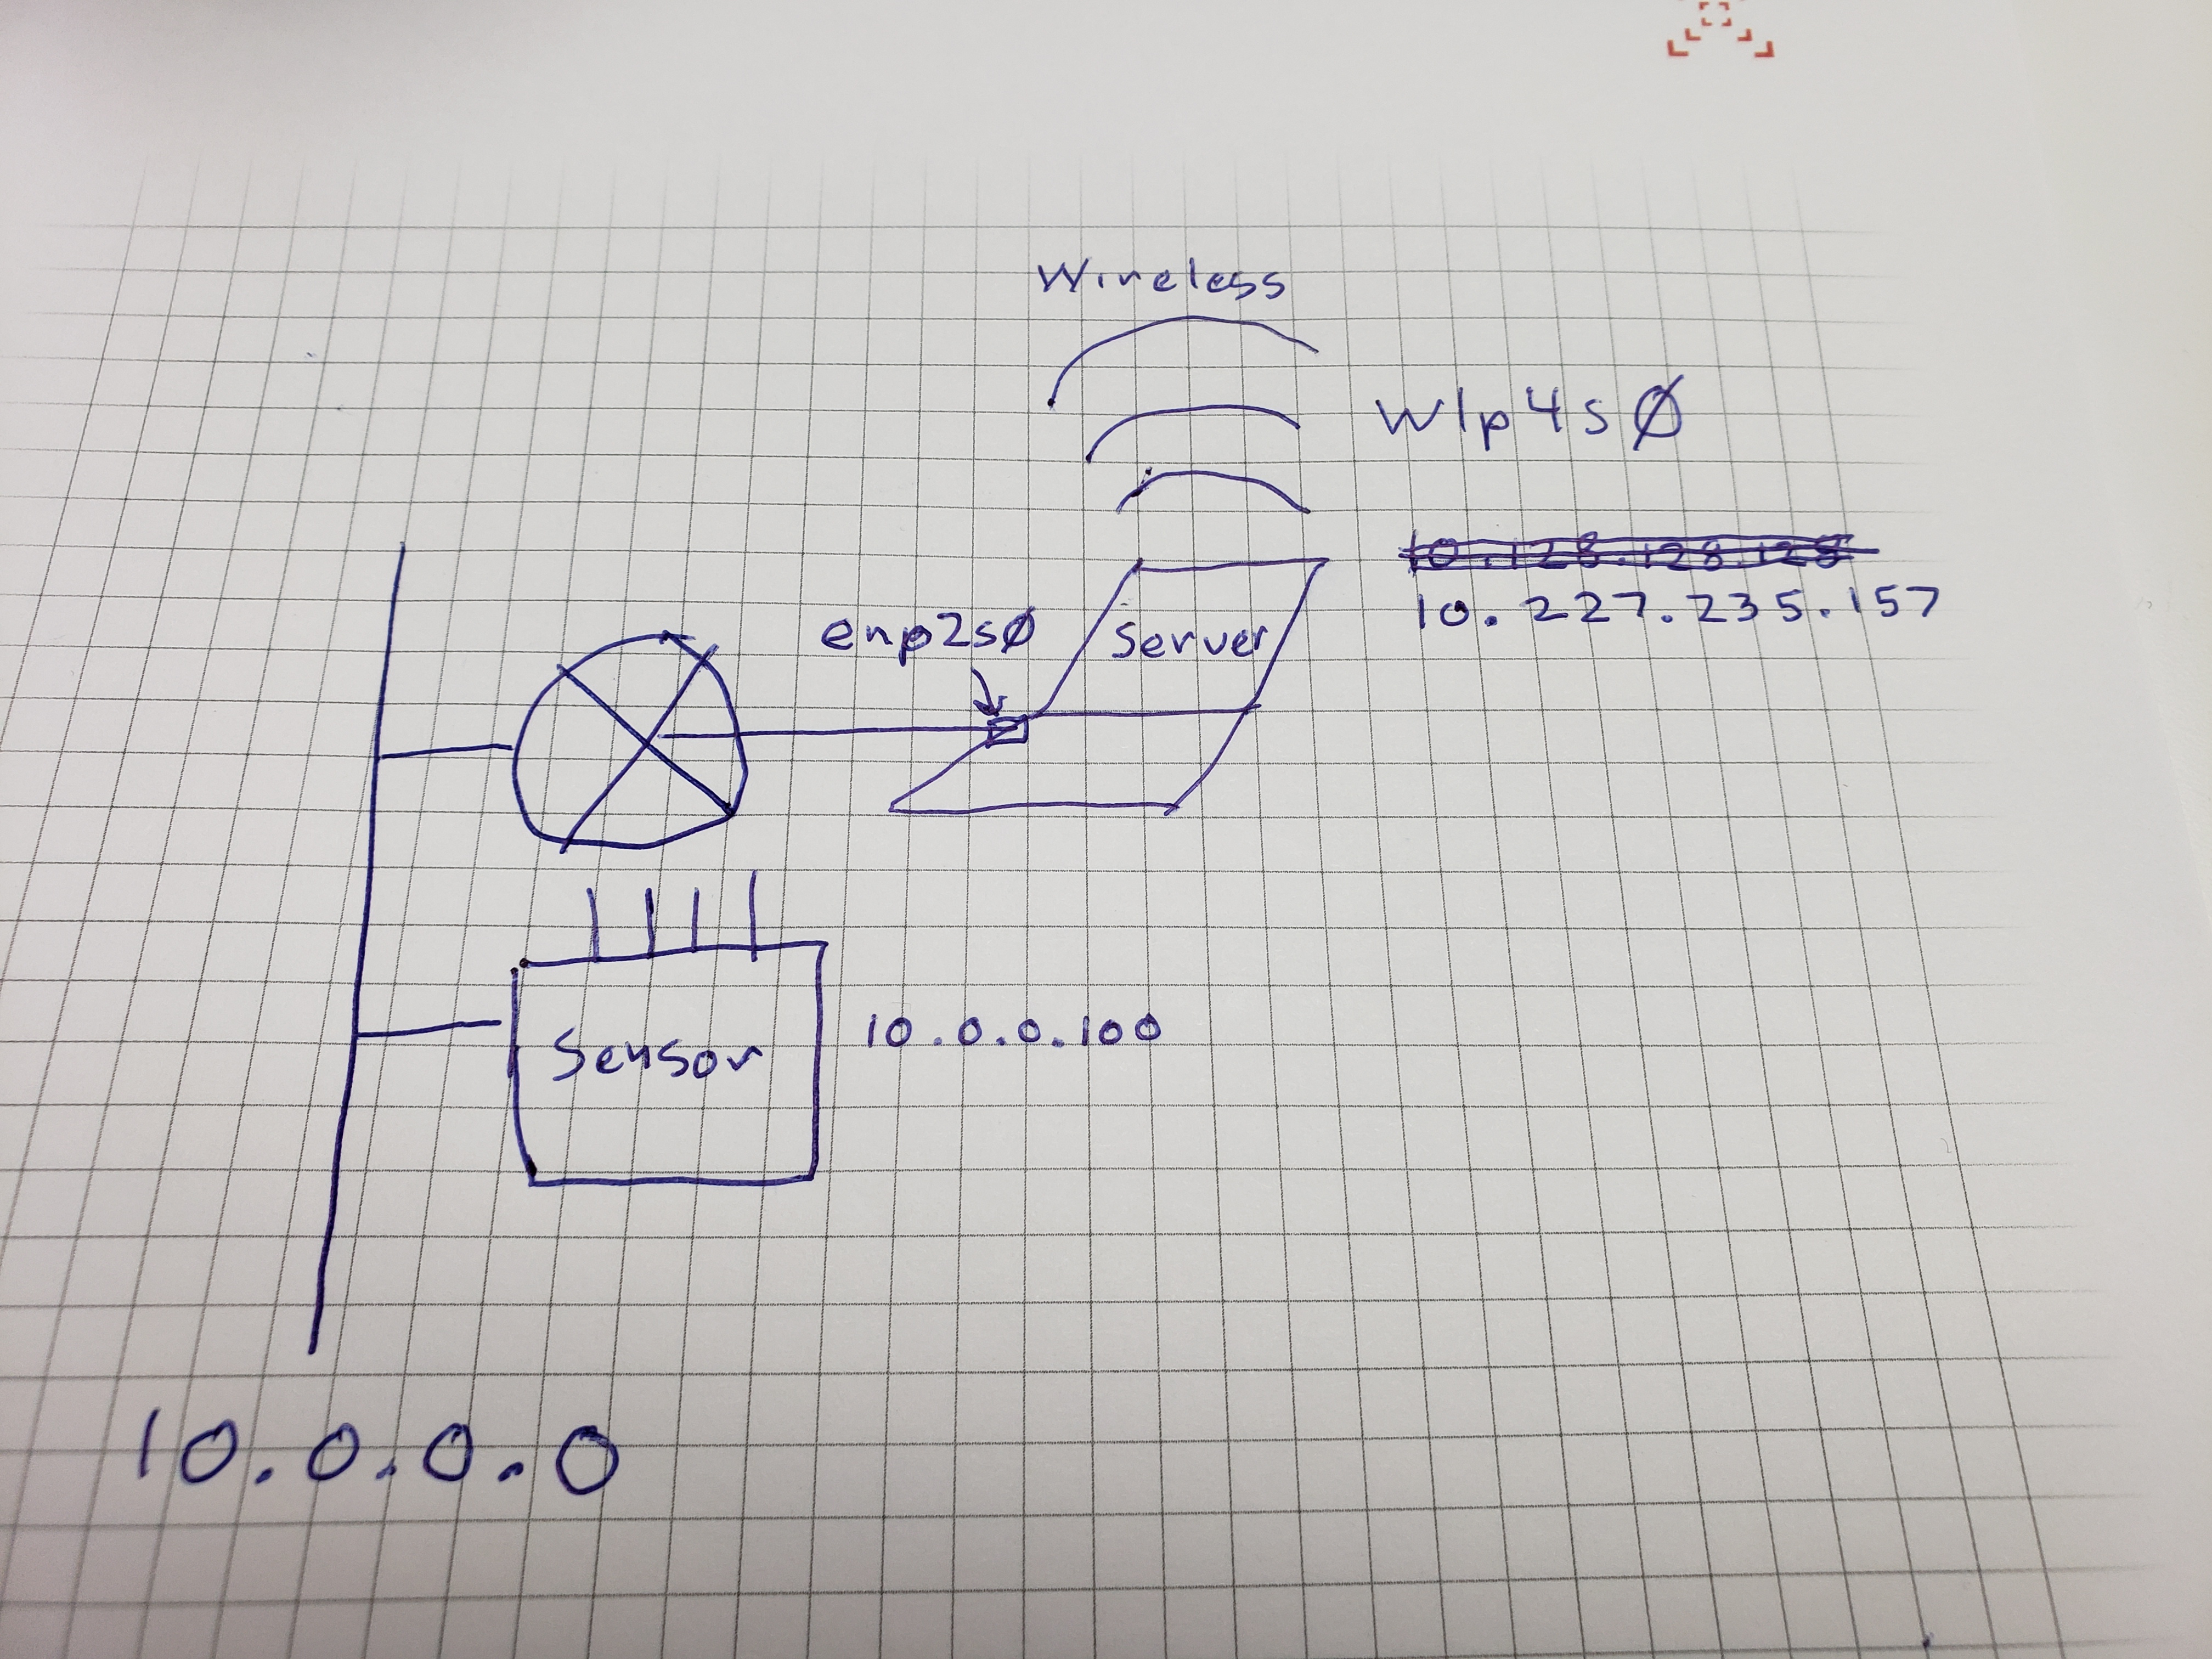 Wireless
wlp4sØ
10.128.128.128
10.227.235.157
enp2sØ
Server
Sensor
10.0.0.100
10.0.0.0